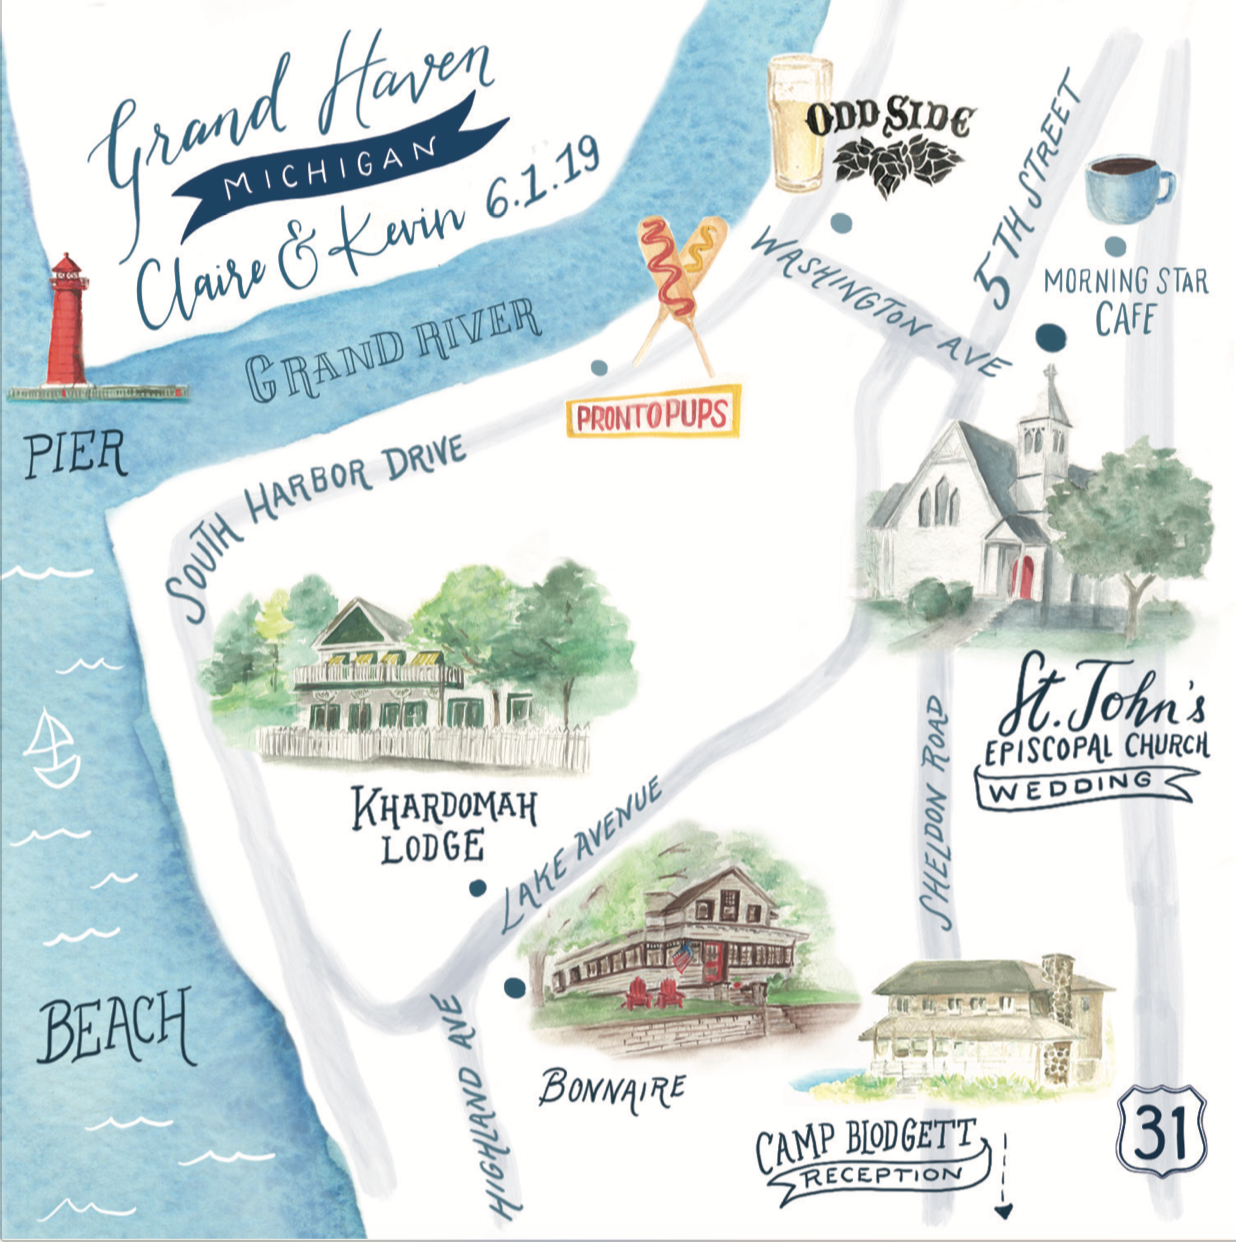 Grand Haven
MICHIGAN
Claire & Kevin 6.1.19
ODD SIDE
5TH STREET
WASHINGTON AVE
MORNING STAR
CAFE
GRAND RIVER
PRONTO PUPS
PIER
SOUTH HARBOR DRIVE
St. John's
EPISCOPAL CHURCH
WEDDING
SHELDON ROAD
KHARDOMAH
LODGE
LAKE AVENUE
BEACH
HIGHLAND AVE
BONNAIRE
CAMP BLODGETT
RECEPTION
31